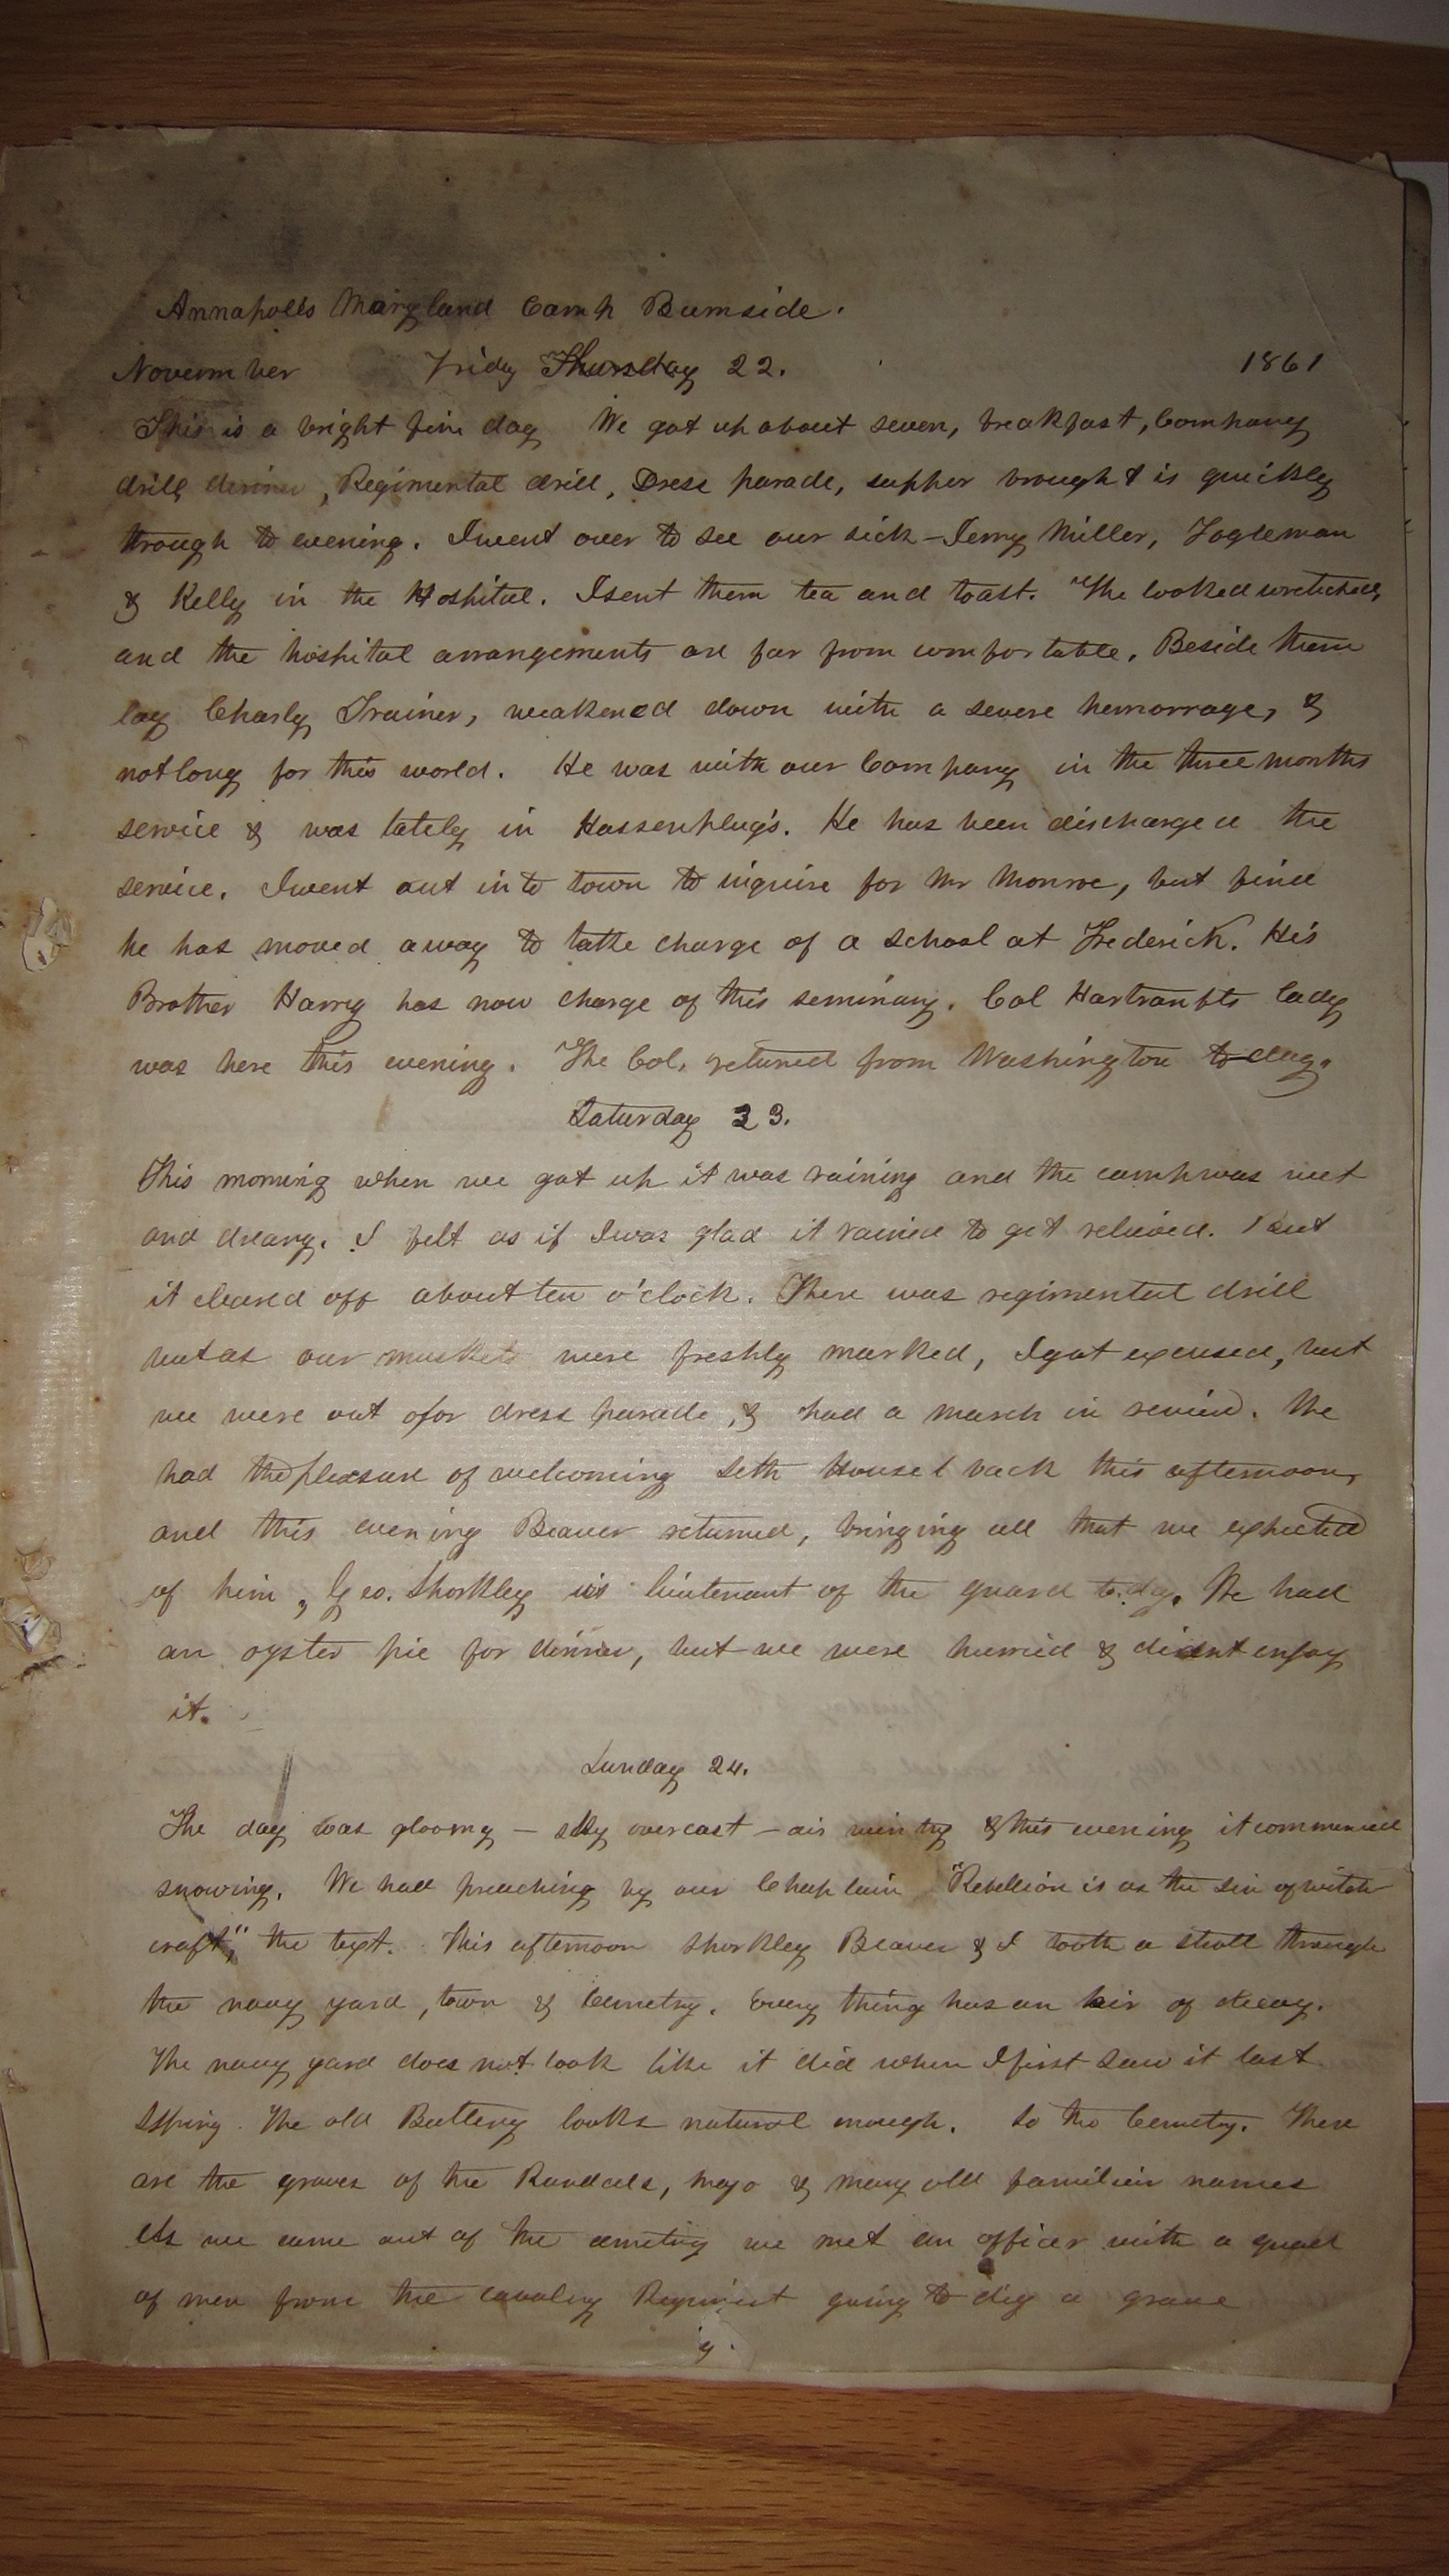 Annapolis Maryland Camp Burnside.
November Friday Thursday 22. 1861
This is a bright fine day We got up about seven, breakfast, Company
drill, dinner, Regimental drill, Dress parade, supper brought is quickly
through to evening. I went over to see our sick - Jerry Miller, Fogleman
& Kelly in the Hospital. I sent them tea and toast. The looked wretched,
and the hospital arrangements are far from comfortable. Beside them
lay Charly Trainer, weakened down with a severe hemorrage, &
not long for this world. He was with our Company in the three months
service & was lately in Hassenplug's. He has been discharged the
service. I went out into town to inquire for Mr Monroe, but find
he has moved away to take charge of a school at Frederick. His
Brother Harry has now charge of this seminary. Col Hartranfts lady
was here this evening. The Col. returned from Washington to-day.
Saturday 23.
This morning when we got up it was raining and the camp was wet
and dreary. I felt as if I was glad it rained to get relieved. But
it cleared off about ten o'clock. There was regimental drill
but as our muskets were freshly marked, I got excused, but
we were out for dress parade, & had a march in review. We
had the pleasure of welcoming Seth Housel back this afternoon,
and this evening Beaver returned, bringing all that we expected
of him, Geo. Shorkley is lieutenant of the guard to.day. We had
an oyster pie for dinner, but we were hurried & didnt enjoy
it.
Sunday 24.
The day was gloomy - sky overcast - air wintry & this evening it commenced
snowing. We had preaching by our Chaplain "Rebellion is as the sin of witch
craft", the text. This afternoon Shorkley Beaver & I took a stroll through
the navy yard, town & Cemetry. Every thing has an air of decay.
The navy yard does not look like it did when I first saw it last
Spring. The old Battery looks natural enough. So the Cemetry. There
are the graves of the Randals, Mayo & many old familiar names
As we came out of the cemetry we met an officer with a squad
of men from the cavalry Regiment going to dig a grave